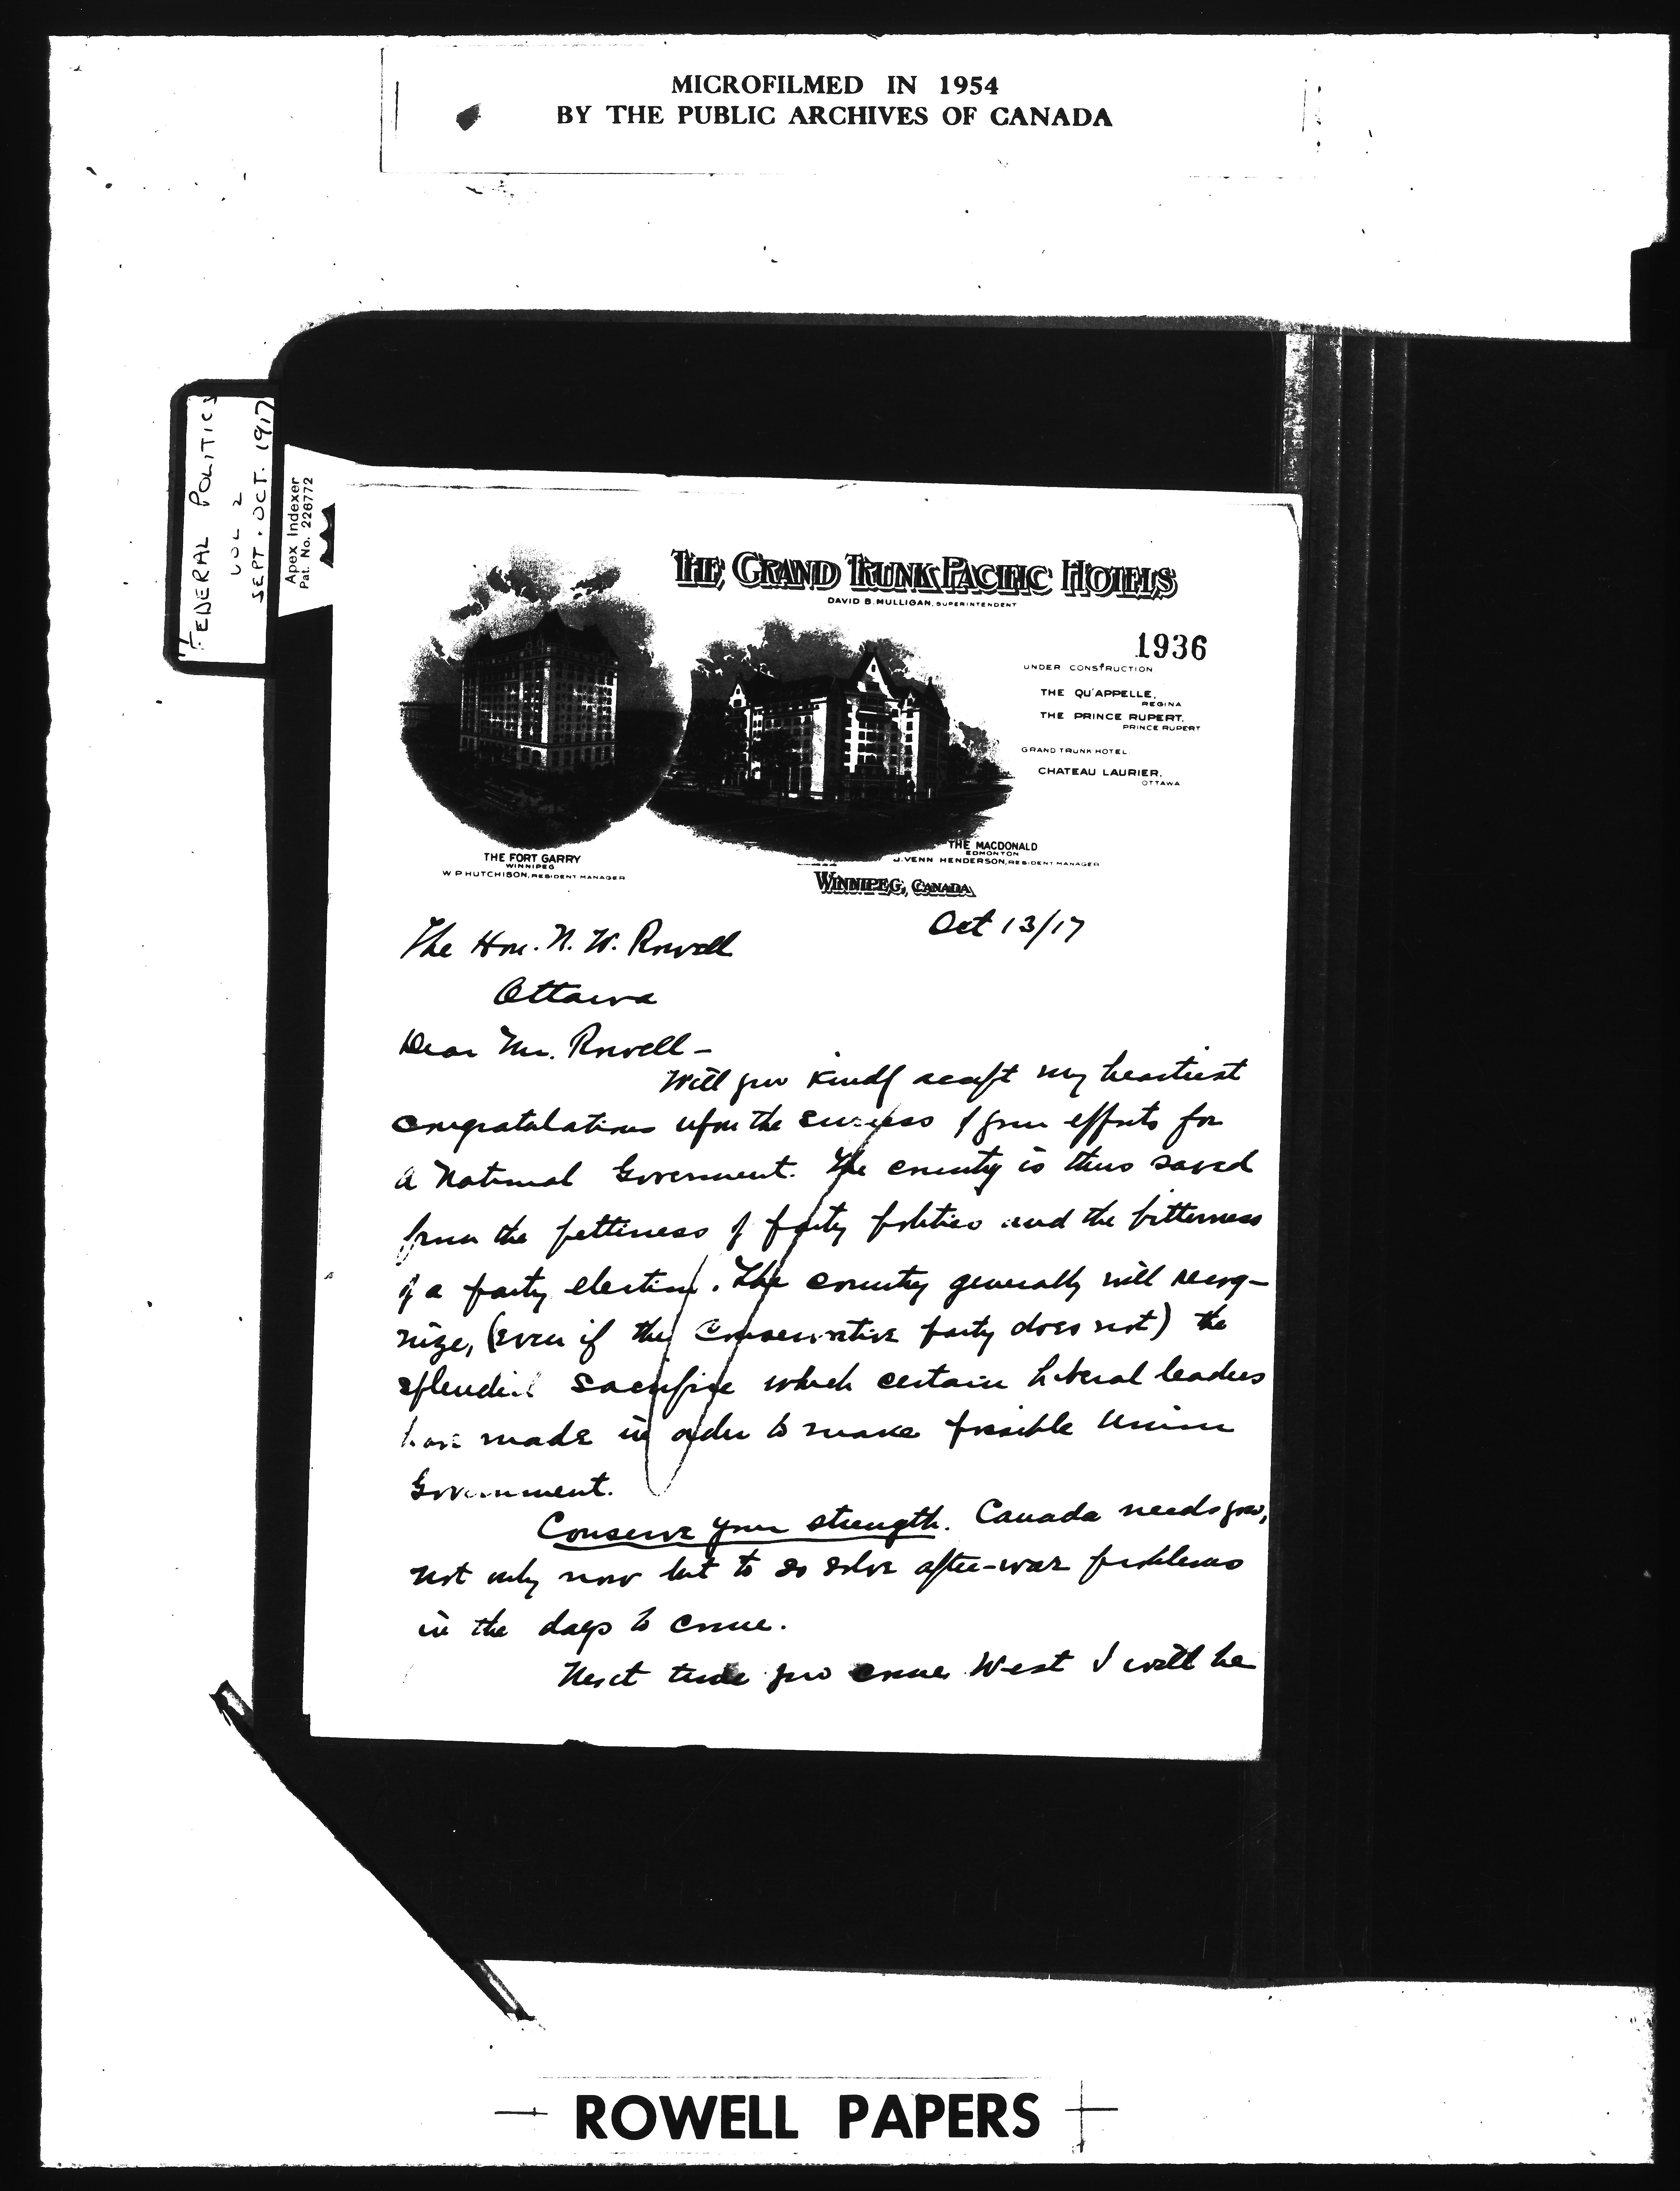 MICROFILMED IN 1954
BY THE PUBLIC ARCHIVES OF CANADA
FEDERAL POLITICS
VOL 2
SEPT. OCT. 1917
Apex Indexer
Pat. No. 226772
THE GRAND TRUNK PACIFIC HOTELS
DAVID B. MULLIGAN, SUPERINTENDENT
1936
UNDER CONSTRUCTION
THE QU'APPELLE,
REGINA
THE PRINCE RUPERT,
PRINCE RUPERT
GRAND TRUNK HOTEL
CHATEAU LAURIER,
OTTAWA
THE FORT GARRY
WINNIPEG
W P HUTCHISON, RESIDENT MANAGER
THE MACDONALD
EDMONTON
J. VENN HENDERSON, RESIDENT MANAGER
WINNIPEG, CANADA
Oct 13/17
The Hon. N. W. Rowell
Ottawa
Dear Mr. Rowell -
Will you kindly accept my heartiest
congratulations upon the success of your efforts for
a National Government. The country is thus saved
from the pettiness of party politics and the bitterness
of a party election. The country generally will recog-
nize, (even if the Conservative party does not) the
splendid sacrifice which certain Liberal leaders
have made in order to make possible Union
Government.
Conserve your strength. Canada needs you,
not only now but to so solve after-war problems
in the days to come.
Next time you come West I will be
ROWELL PAPERS